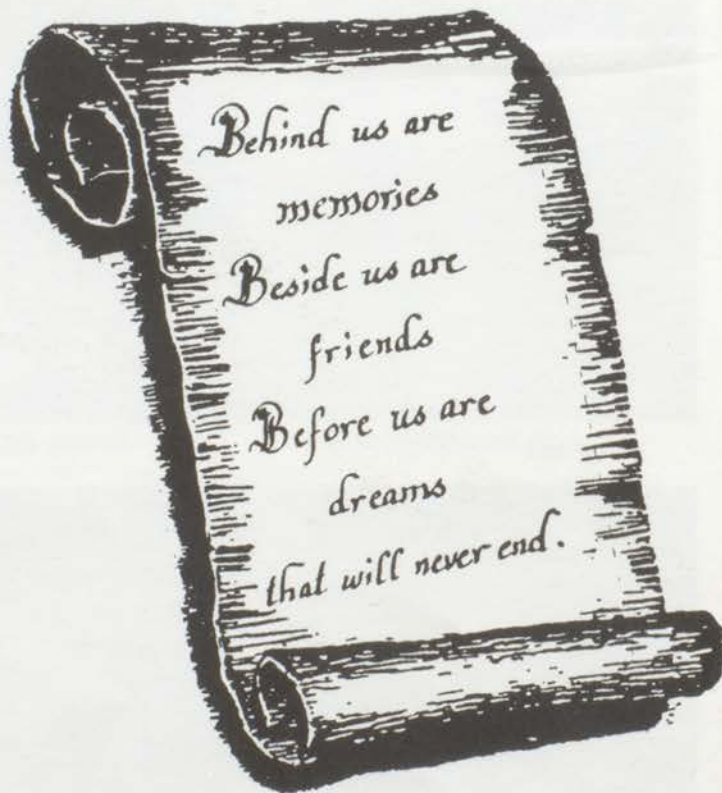 Behind us are
memories
Beside us are
friends
Before us are
dreams
that will never end.